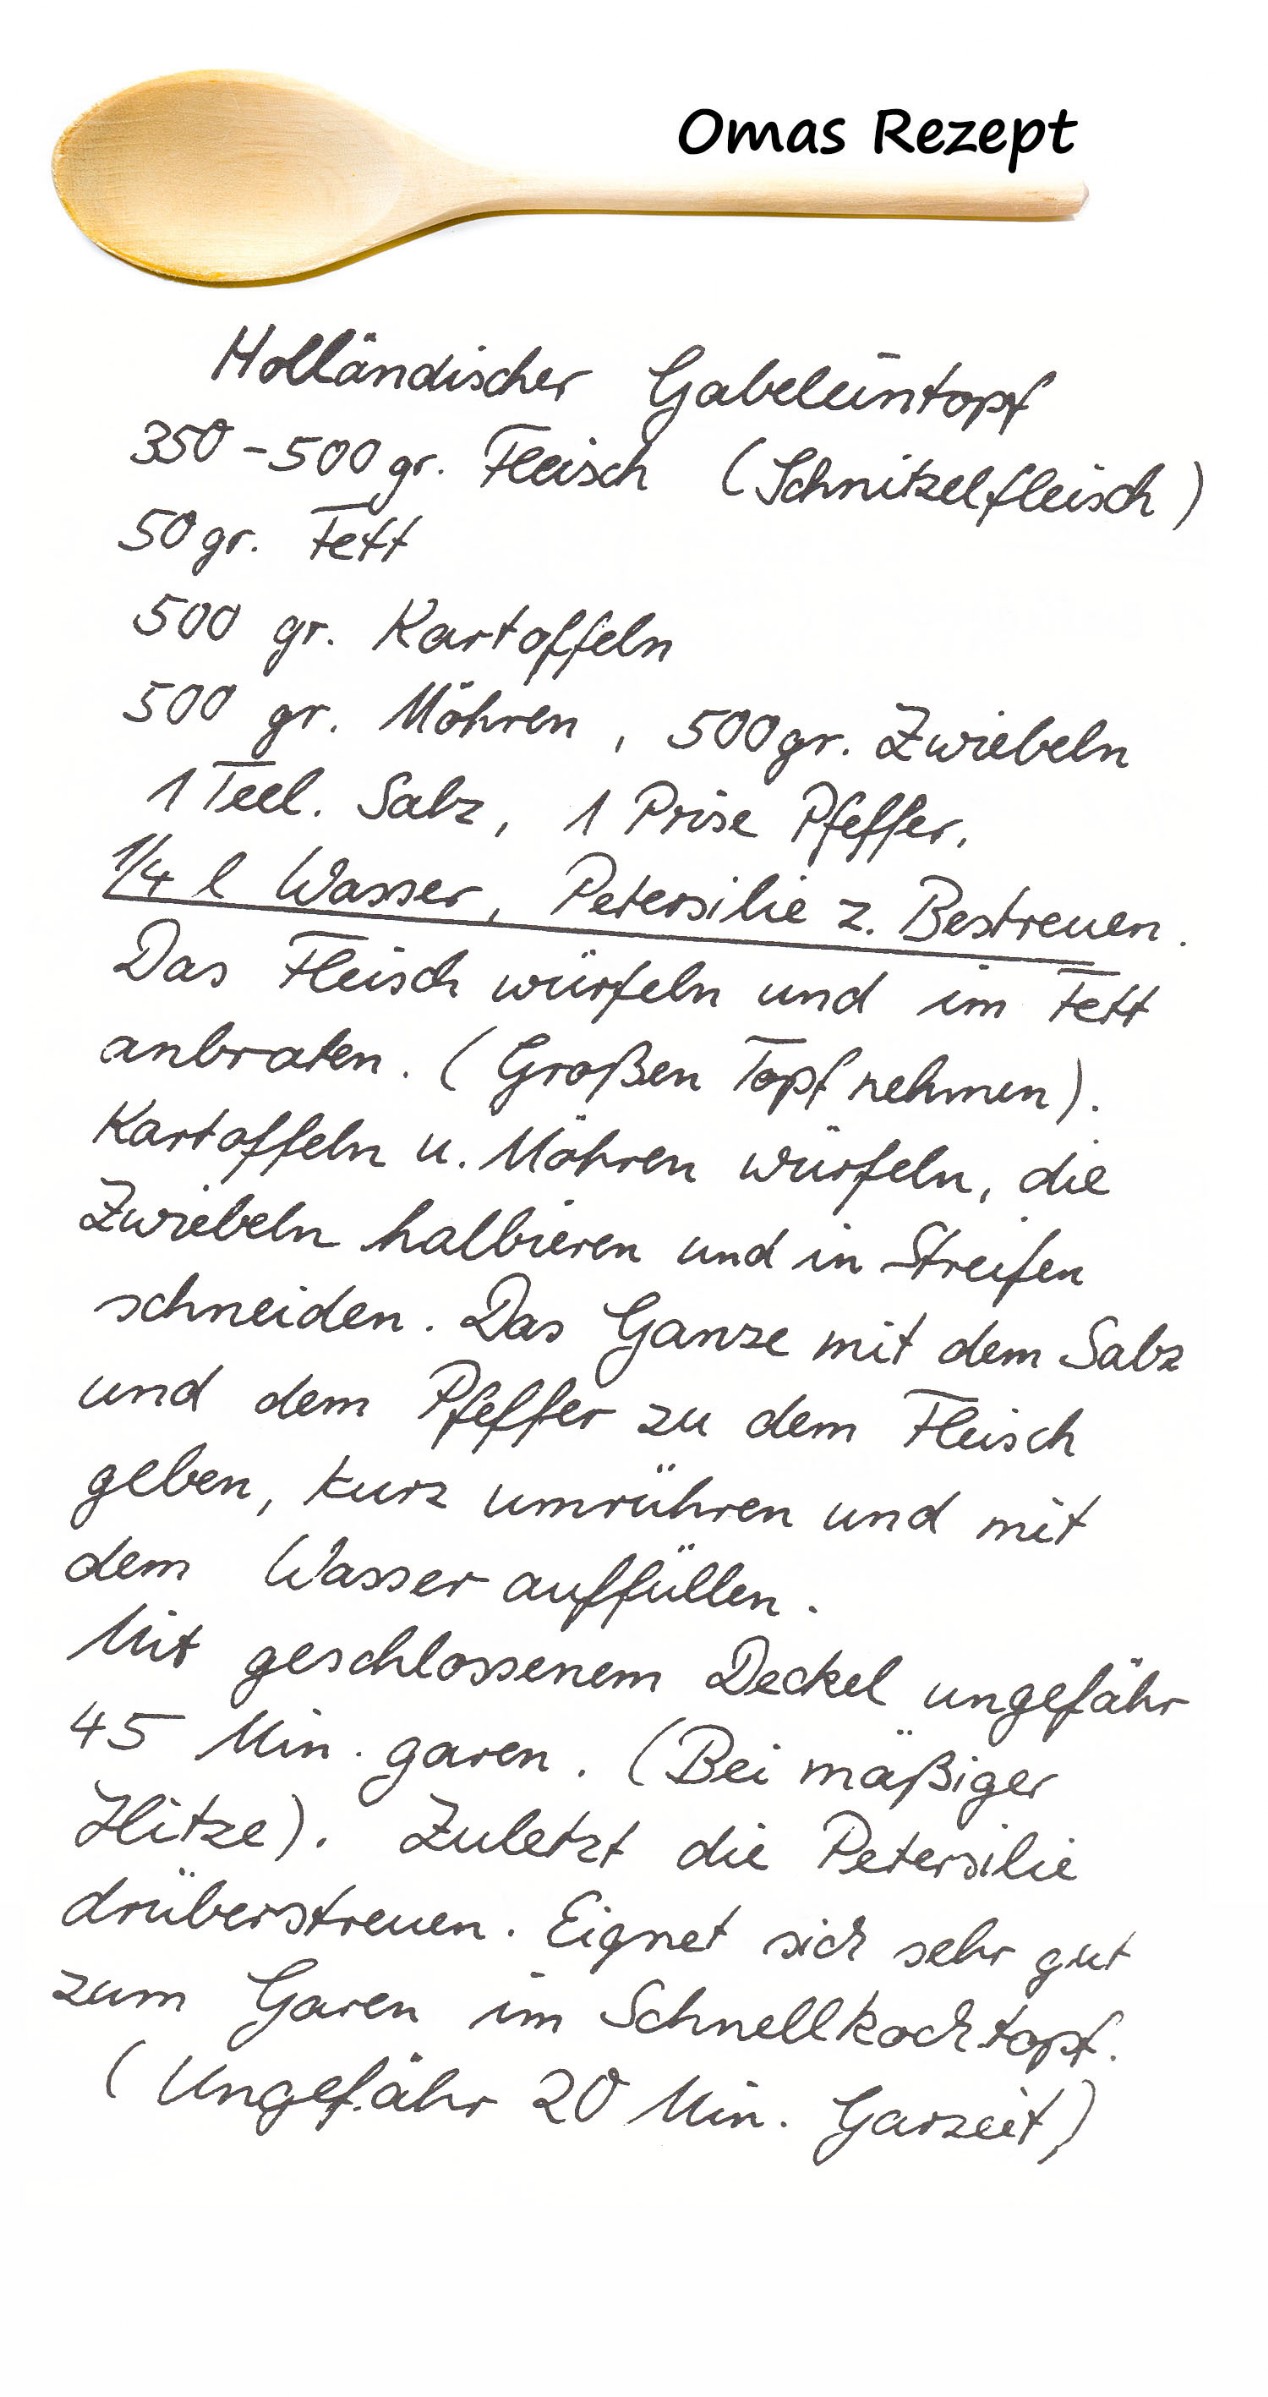 Omas Rezept
Holländischer Gabeleintopf
350-500 gr. Fleisch (Schnitzelfleisch)
50 gr. Fett
500 gr. Kartoffeln
500 gr. Möhren, 500 gr. Zwiebeln
1 Teel. Salz, 1 Prise Pfeffer,
1/4 l Wasser, Petersilie z. Bestreuen.
Das Fleisch würfeln und im Fett
anbraten. (Großen Topf nehmen).
Kartoffeln u. Möhren würfeln, die
Zwiebeln halbieren und in Streifen
schneiden. Das Ganze mit dem Salz
und dem Pfeffer zu dem Fleisch
geben, kurz umrühren und mit
dem Wasser auffüllen.
Mit geschlossenem Deckel ungefähr
45 Min. garen. (Bei mäßiger
Hitze). Zuletzt die Petersilie
drüberstreuen. Eignet sich sehr gut
zum Garen im Schnellkochtopf.
(Ungefähr 20 Min. Garzeit)